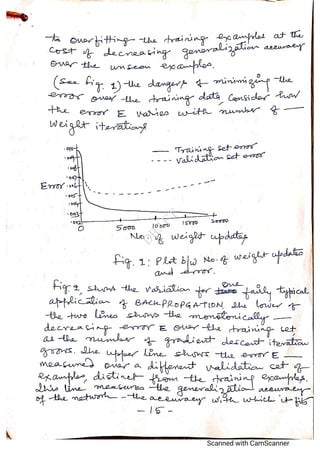 to overfitting the training examples at the
cost of decreasing generalization accuracy
over the unseen examples.
(See fig. 1) the dangers of minimizing the
error over the training data, Consider how
the error E varies with number of —
Weight iterations
— Training set error
- - - - Validation set error
Error
0
5000
10000
15000
20000
No. of weight updates
Fig. 1: Plot b/w No. of weight updates
and error.
Fig 1 shows the variation for one fairly typical
application of BACKPROPGATION, the lower of
the two lines shows the monotonically —
decreasing error E over the training set
as the number of gradient descent iteration
grows. The upper line shows the error E —
measured over a different validation set of
examples distinct from the training examples.
This line measures the generalization accuracy
of the network - the accuracy with which it fits
- 15 -
Scanned with CamScanner